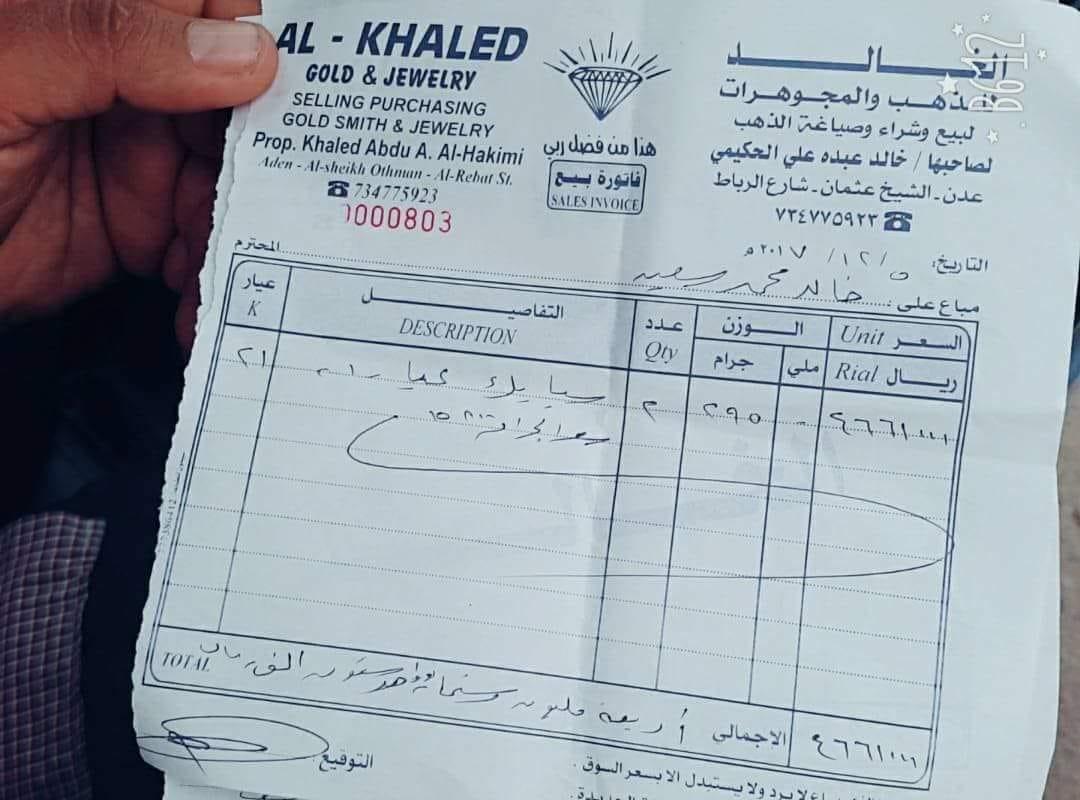 AL - KHALED
GOLD & JEWELRY
SELLING PURCHASING
GOLD SMITH & JEWELRY
Prop. Khaled Abdu A. Al-Hakimi
Aden - Al-sheikh Othman - Al-Rebat St.
☎ 734775923
0000803
هذا من فضل ربي
فاتورة بيع
SALES INVOICE
الخالد
للذهب والمجوهرات
لبيع وشراء وصياغة الذهب
لصاحبها / خالد عبده علي الحكيمي
عدن ـ الشيخ عثمان ـ شارع الرباط
☎ ٧٣٤٧٧٥٩٢٣
التاريخ: ٥ / ١٢ / ٢٠١٧م
مباع على: خالد محمد سعيد المحترم
السعر Unit
ريال Rial
الوزن
ملي
جرام
عدد
Qty
التفاصيل
DESCRIPTION
عيار
K
٢٩٥
٢١
سعر الجرام
الاجمالي أربعة مليون وستمائة وواحد وستون الف ريال TOTAL
التوقيع
لا يرد ولا يستبدل الا بسعر السوق .
B612